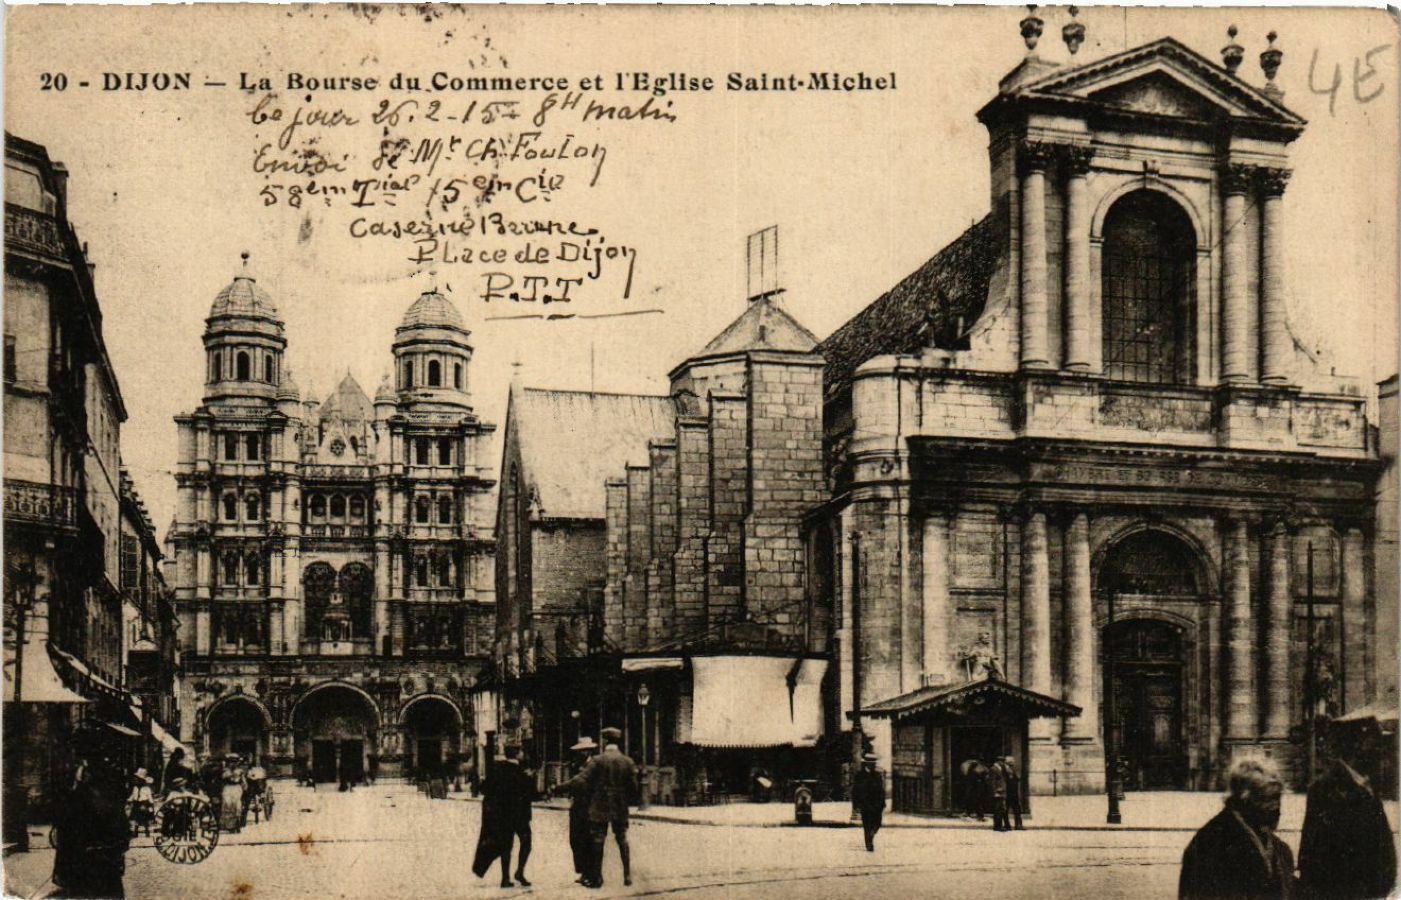 20 - DIJON — La Bourse du Commerce et l'Eglise Saint-Michel
4E
Ce jour 26.2-15 - 8H matin
Envoi de Mr. Ch. Foulon
58em Tial 15em Cie
Caserne
Place de Dijon
P.T.T
DIJON